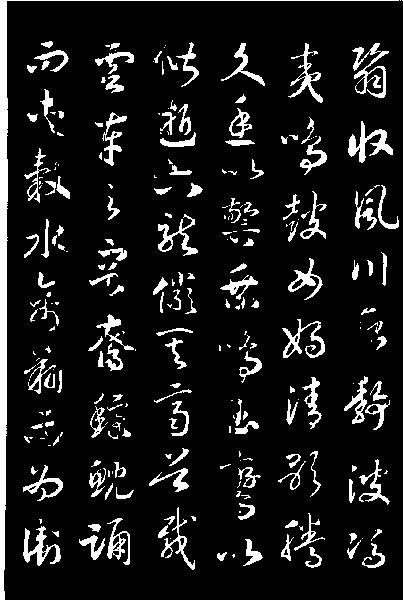 翳收風川后靜波馮
夷鳴鼓女媧清歌騰
文魚以警乘鳴玉鸞以
偕逝六龍儼其齊首載
雲車之容裔鯨鯢踊
而夾轂水禽翔而為衛